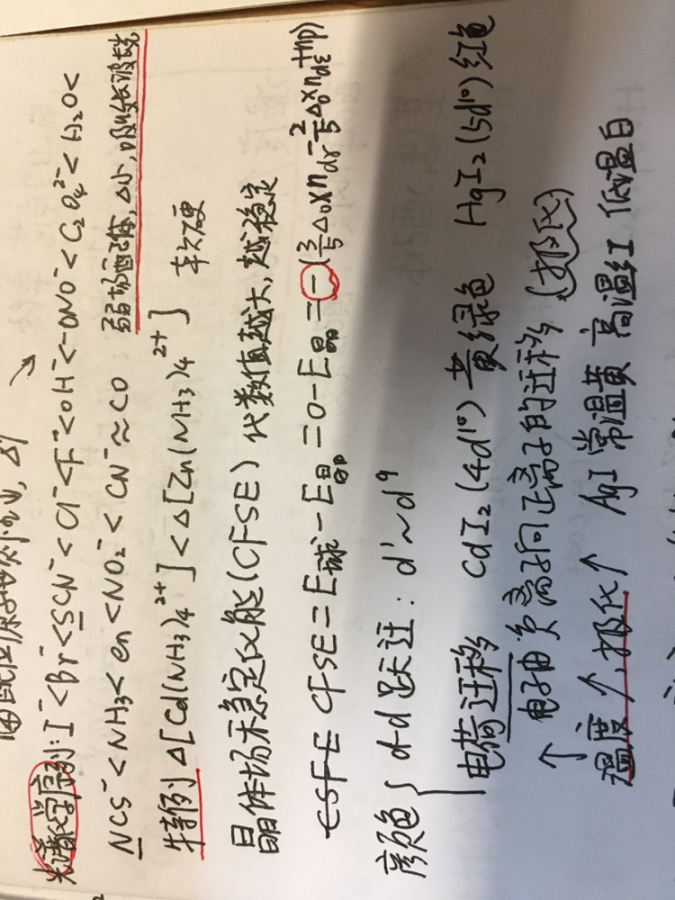 光谱化学序列: I⁻<Br⁻<SCN⁻<Cl⁻<F⁻<OH⁻<-ONO⁻<C₂O₄²⁻<H₂O<
NCS⁻<NH₃<en<NO₂⁻<CN⁻≈CO 弱场配体,Δ小,吸收长波长
特例 Δ[Cd(NH₃)₄²⁺]<Δ[Zn(NH₃)₄²⁺] 软硬
晶体场稳定化能(CFSE) 代数值越大,越稳定
CFSE=E球-E晶=0-E晶=-(3/5Δ₀×n_dγ-2/5Δ₀×n_dε+np)
颜色{d-d跃迁: d¹~d⁹
电荷迁移 CdI₂(4d¹⁰)黄绿色 HgI₂(5d¹⁰)红色
↑电子由负离子向正离子的迁移(极化)
温度↑,极化↑ AgI常温黄 高温红 低温白